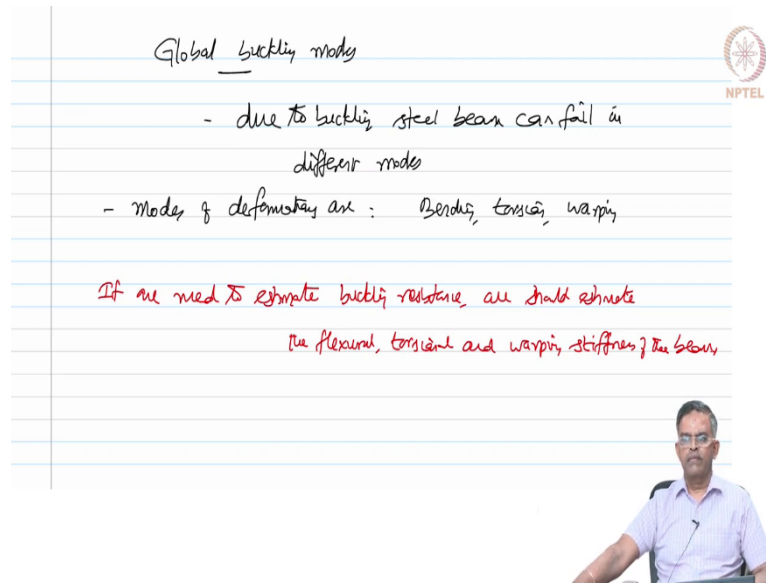 Global buckling modes
NPTEL
- due to buckling steel beam can fail in
different modes
- Modes of deformations are : Bending, torsion, warping
If one need to estimate buckling resistance, one should estimate
the flexural, torsional and warping stiffness of the beam,